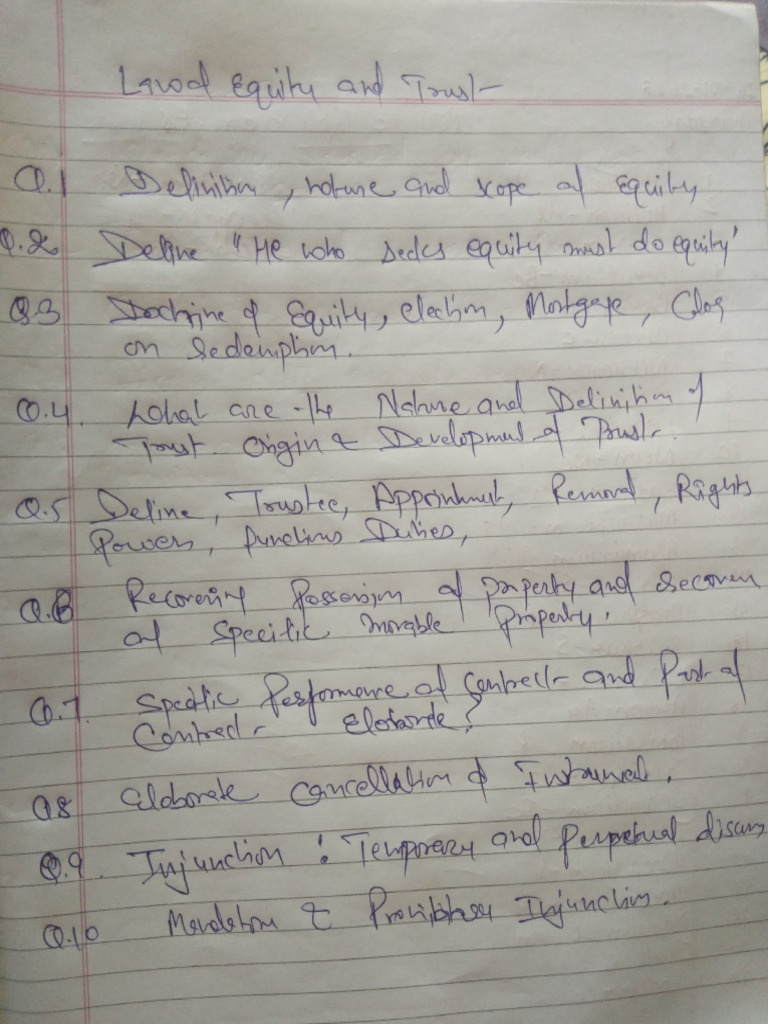 Law of Equity and Trust
Q.1 Definition, nature and scope of Equity
Q.2 Define "He who seeks equity must do equity"
Q.3 Doctrine of Equity, election, Mortgage, Clog
on Redemption.
Q.4. What are the Nature and Definition of
Trust. Origin & Development of Trust.
Q.5 Define, Trustee, Appointment, Removal, Rights
Powers, functions Duties,
Q.6 Recovering Possession of property and recovery
of specific movable Property.
Q.7. Specific Performance of Contract and Part of
Contract. Elaborate?
Q8 Elaborate Cancellation of Instrument.
Q.9. Injunction : Temporary and Perpetual discuss
Q.10 Mandatory & Prohibitory Injunction.